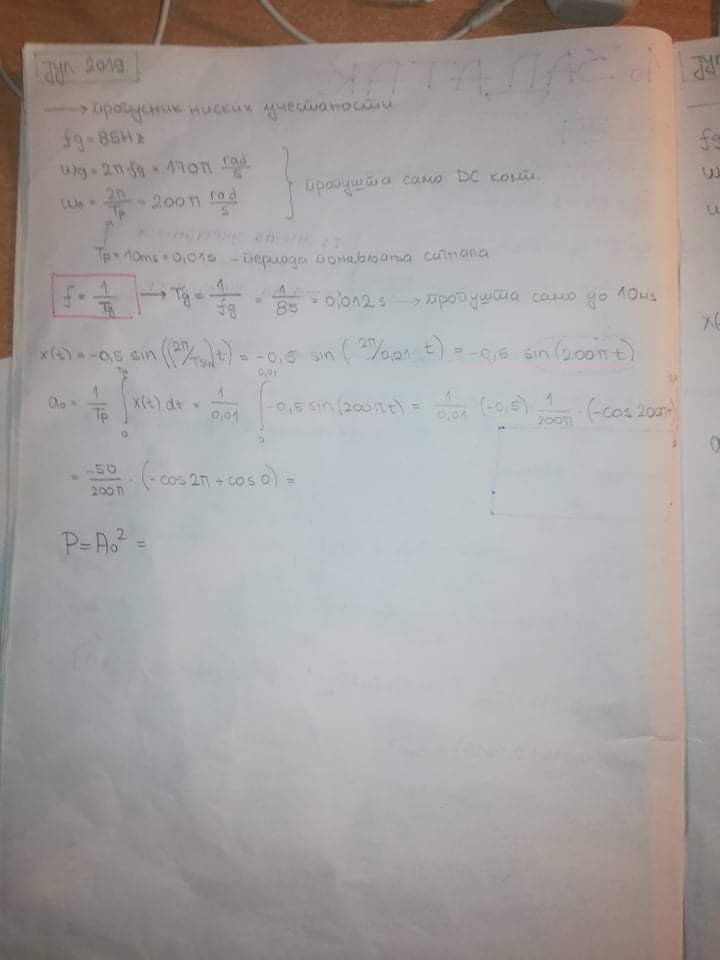 Јул 2019
→ пропусник ниских учестаности
fg = 85Hz
ωg = 2π·fg = 170π rad/s
ω₀ = 2π/Tp = 200π rad/s } пропушта само DC комп.
Tp = 10ms = 0,01s - периода понављања сигнала
f = 1/Tg → Tg = 1/fg = 1/85 = 0,012s → пропушта само до 10ms
x(t) = -0,5 sin((2π/Tsin)t) = -0,5 sin(2π/0,01 t) = -0,5 sin(200πt)
a₀ = 1/Tp ∫₀^Tp x(t) dt = 1/0,01 ∫₀^0,01 -0,5 sin(200πt) = 1/0,01 (-0,5) · 1/200π · (-cos200πt)
= -50/200π · (-cos2π + cos0) =
P = A₀² =